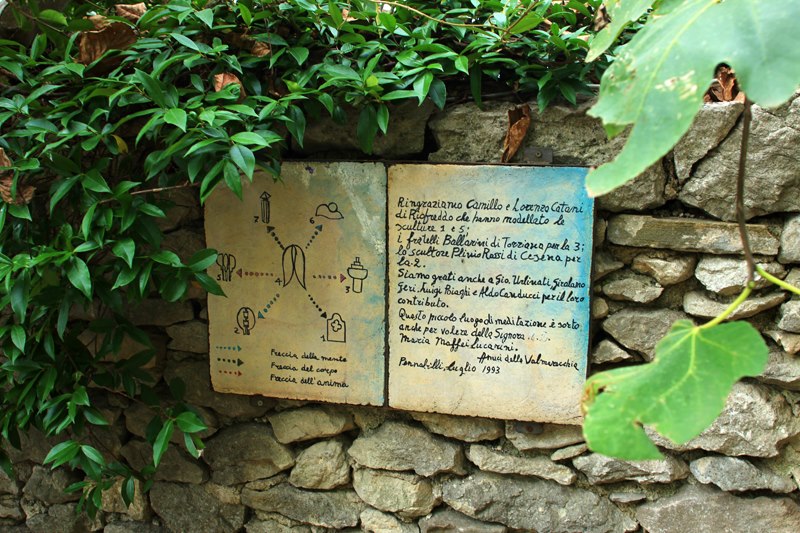 7
6
5
4
3
2
1
Freccia della mente
Freccia del corpo
Freccia dell'anima
Ringraziamo Camillo e Lorenzo Catani
di Riofreddo che hanno modellato le
sculture 1 e 5;
i fratelli Ballarini di Torriana per la 3;
lo scultore Plinio Rossi di Cesena per
la 2.
Siamo grati anche a Gio. Urbinati, Girolamo
Geri, Luigi Biaghi e Aldo Canducci per il loro
contributo.
Questo piccolo luogo di meditazione è sorto
anche per volere della Signora
Maria Maffei Lucarini.
Amici della Valmarecchia
Pennabilli, Luglio 1993